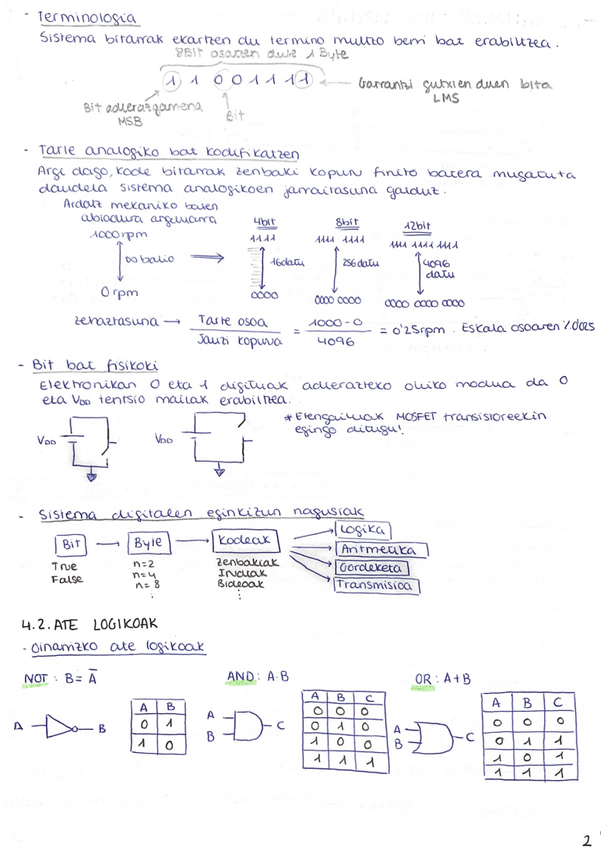 - Terminologia
Sistema bitarrak ekartzen du termino multzo berri bat erabiltzea.
8Bit osatzen dute 1 Byte
1 1 0 0 1 1 1 1
Garrantzi gutxien duen bita
LMS
Bit adierazgarriena
MSB
Bit
- Tarte analogiko bat kodifikatzen
Argi dago, kode bitarrak zenbaki kopuru finito batera mugatuta
daudela sistema analogikoen jarraitasuna galduz.
Ardatz mekaniko baten
abiadura angeluarra
1000rpm
∞ balio
0 rpm
4bit 8bit 12bit
1111 1111 1111 1111 1111 1111
16datu 256datu 4096
datu
0000 0000 0000 0000 0000 0000
zehaztasuna → Tarte osoa / Jauzi kopurua = 1000-0 / 4096 = 0'25rpm. Eskala osoaren %0025
- Bit bat fisikoki
Elektronikan 0 eta 1 digituak adierazteko ohiko modua da 0
eta VDD tentsio mailak erabiltzea.
VDD VDD
* Etengailuak MOSFET transistoreekin
egingo ditugu!
- Sistema digitalen eginkizun nagusiak
Bit → Byte → Kodeak
Logika
Aritmetika
Gordeketa
Transmisioa
True n=2 Zenbakiak
False n=4 Irudiak
n=8 Bideoak
⋮ ⋮
4.2. ATE LOGIKOAK
- Oinarrizko ate logikoak
NOT: B = A̅ AND: A·B OR: A+B
A B
A B
0 1
1 0
A B C
A B C
0 0 0
0 1 0
1 0 0
1 1 1
A B C
A B C
0 0 0
0 1 1
1 0 1
1 1 1
2